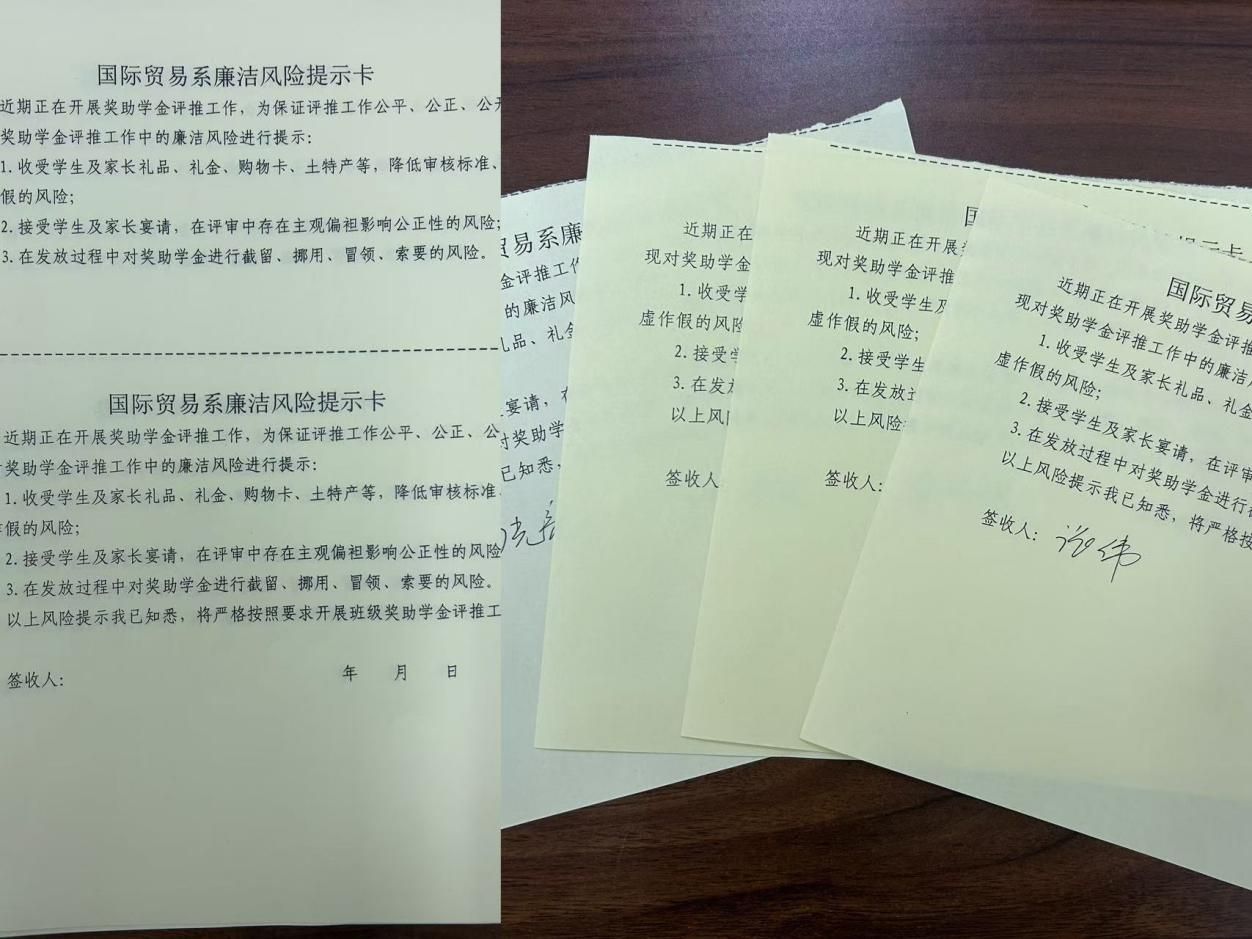 国际贸易系廉洁风险提示卡
近期正在开展奖助学金评推工作，为保证评推工作公平、公正、公开
奖助学金评推工作中的廉洁风险进行提示：
1.收受学生及家长礼品、礼金、购物卡、土特产等，降低审核标准、
假的风险；
2.接受学生及家长宴请，在评审中存在主观偏袒影响公正性的风险；
3.在发放过程中对奖助学金进行截留、挪用、冒领、索要的风险。
国际贸易系廉洁风险提示卡
近期正在开展奖助学金评推工作，为保证评推工作公平、公正、公
奖助学金评推工作中的廉洁风险进行提示：
1.收受学生及家长礼品、礼金、购物卡、土特产等，降低审核标准
假的风险；
2.接受学生及家长宴请，在评审中存在主观偏袒影响公正性的风险
3.在发放过程中对奖助学金进行截留、挪用、冒领、索要的风险。
以上风险提示我已知悉，将严格按照要求开展班级奖助学金评推工
签收人： 年 月 日
贸易系廉
金评推工作
的廉洁风
礼品、礼金
宴请，在
对奖助学
已知悉，
近期正在
现对奖助学金
1.收受学
虚作假的风险
2.接受学
3.在发放
以上风险
签收人
国
近期正在开展
现对奖助学金评推
1.收受学生及
虚作假的风险；
2.接受学生
3.在发放过
以上风险
签收人：
提示卡
国际贸易
近期正在开展奖助学金评推
现对奖助学金评推工作中的廉洁
1.收受学生及家长礼品、礼金
虚作假的风险；
2.接受学生及家长宴请，在评审
3.在发放过程中对奖助学金进行截
以上风险提示我已知悉，将严格按
签收人：